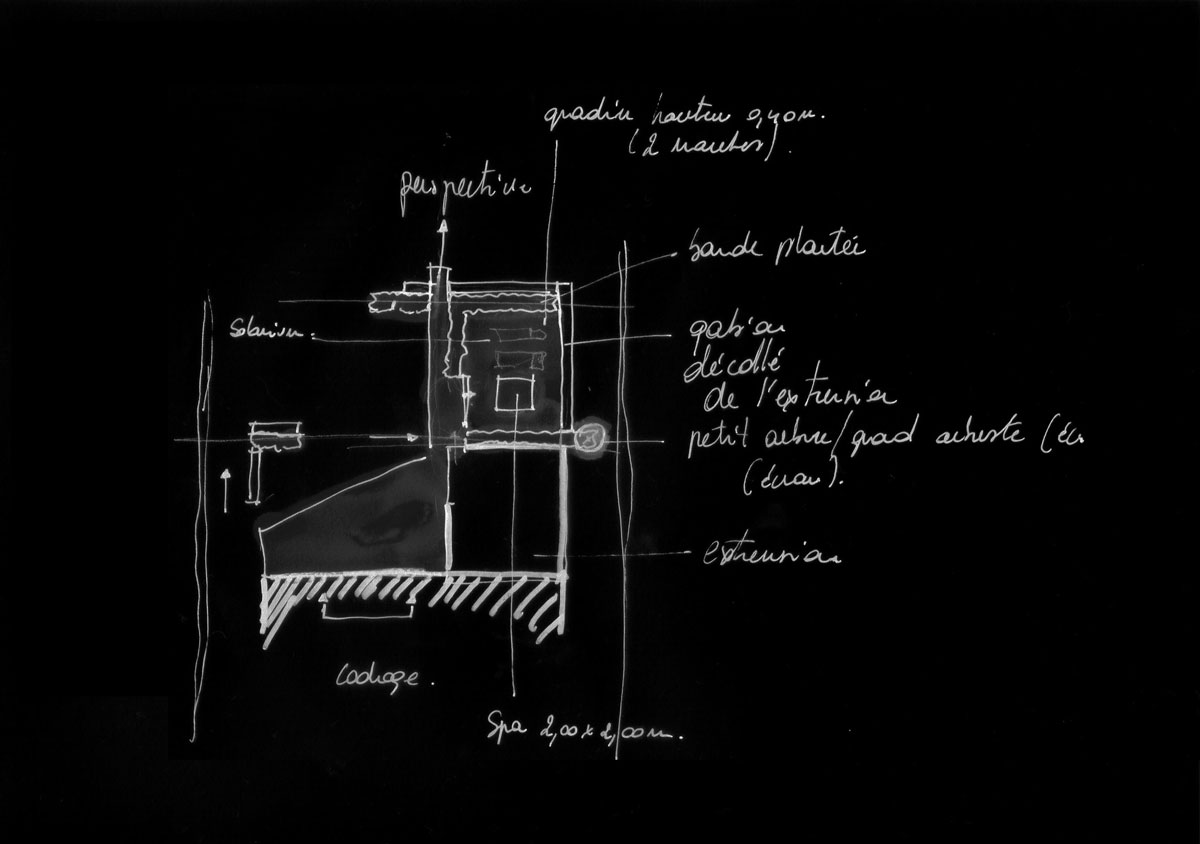 gradin hauteur 0,40m.
(2 marches).
perspective
bande plantée
Solarium.
gabion
décollé
de l'extrusion
petit arbre/grand arbuste (éc
(écran).
extrusion
Cadrage.
Spa 2,00 x 2,00m.